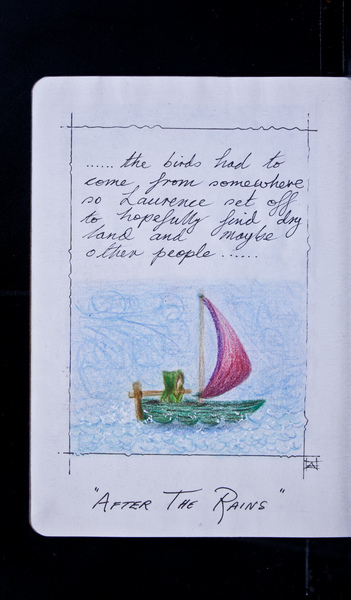 ...... the birds had to
come from somewhere
so Laurence set off
to hopefully find dry
land and maybe
other people ......
"AFTER THE RAINS"